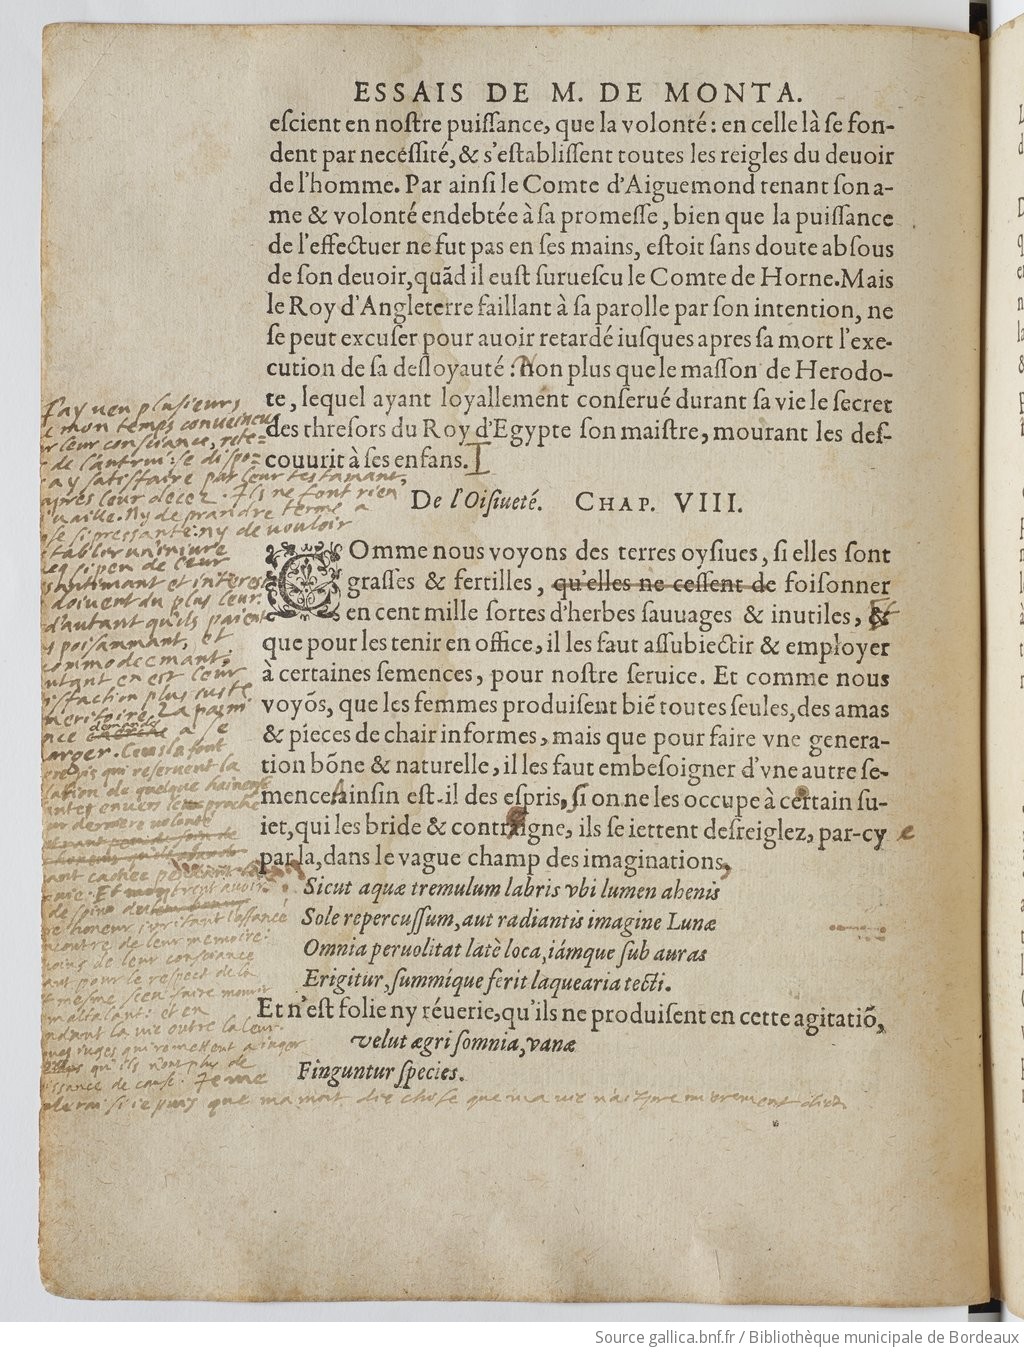 ESSAIS DE M. DE MONTA.
eſcient en noſtre puiſſance, que la volonté: en celle là ſe fon-
dent par neceſſité, & s'eſtabliſſent toutes les reigles du deuoir
de l'homme. Par ainſi le Comte d'Aiguemond tenant ſon a-
me & volonté endebtée à ſa promeſſe, bien que la puiſſance
de l'effectuer ne fut pas en ſes mains, eſtoit ſans doute abſous
de ſon deuoir, quãd il euſt ſurueſcu le Comte de Horne. Mais
le Roy d'Angleterre faillant à ſa parolle par ſon intention, ne
ſe peut excuſer pour auoir retardé iuſques apres ſa mort l'exe-
cution de ſa deſloyauté: Non plus que le maſſon de Herodo-
te, lequel ayant loyallement conſerué durant ſa vie le ſecret
des threſors du Roy d'Egypte ſon maiſtre, mourant les deſ-
couurit à ſes enfans.
J'ay veu plusieurs
mon temps conveincus
leur consciance, rete-
de l'autrui: se dispo-
a y satisfaire par leur testamant,
apres leur decez. Ils ne font rien
vaille. Ny de prandre terme a
se si pressante: ny de vouloir
establir un'iniure
si peu de leur
santimant et interest
doivent du plus leur.
d'autant qu'ils paient
poisammant, et
commodeemant:
autant en est leur
satisfaction plus iuste
meritoire. La
a se
charger. Ceus la font
pis qui reservent la
de quelque haineuse
envers le proche
derniere volonté
cachée pendant
vie. Et montrent avoir
de soin du
honeur irritant l'offancé
l'encontre de leur memoire:
moins de leur consciance
pour le respect de la
mesme sceu faire mourir
maltalant: et en
la vie outre la leur.
iuges qui remettent a iuger
qu'ils n'ont plus de
de cause. Je me
si ie puis que ma mort die chose que ma vie n'ait
De l'Oiſiueté. CHAP. VIII.
COmme nous voyons des terres oyſiues, ſi elles ſont
graſſes & fertilles, qu'elles ne ceſſent de foiſonner
en cent mille ſortes d'herbes ſauuages & inutiles, &
que pour les tenir en office, il les faut aſſubiectir & employer
à certaines ſemences, pour noſtre ſeruice. Et comme nous
voyõs, que les femmes produiſent biẽ toutes ſeules, des amas
& pieces de chair informes, mais que pour faire vne genera-
tion bõne & naturelle, il les faut embeſoigner d'vne autre ſe-
mence: ainſin eſt-il des eſpris, ſi on ne les occupe à certain ſu-
iet, qui les bride & contraigne, ils ſe iettent deſreiglez, par-cy
par la, dans le vague champ des imaginations,
Sicut aquæ tremulum labris vbi lumen ahenis
Sole repercuſſum, aut radiantis imagine Lunæ
Omnia peruolitat latè loca, iámque ſub auras
Erigitur, ſummíque ferit laquearia tecti.
Et n'eſt folie ny réuerie, qu'ils ne produiſent en cette agitatiõ,
velut ægri ſomnia, vanæ
Finguntur ſpecies.
Source gallica.bnf.fr / Bibliothèque municipale de Bordeaux